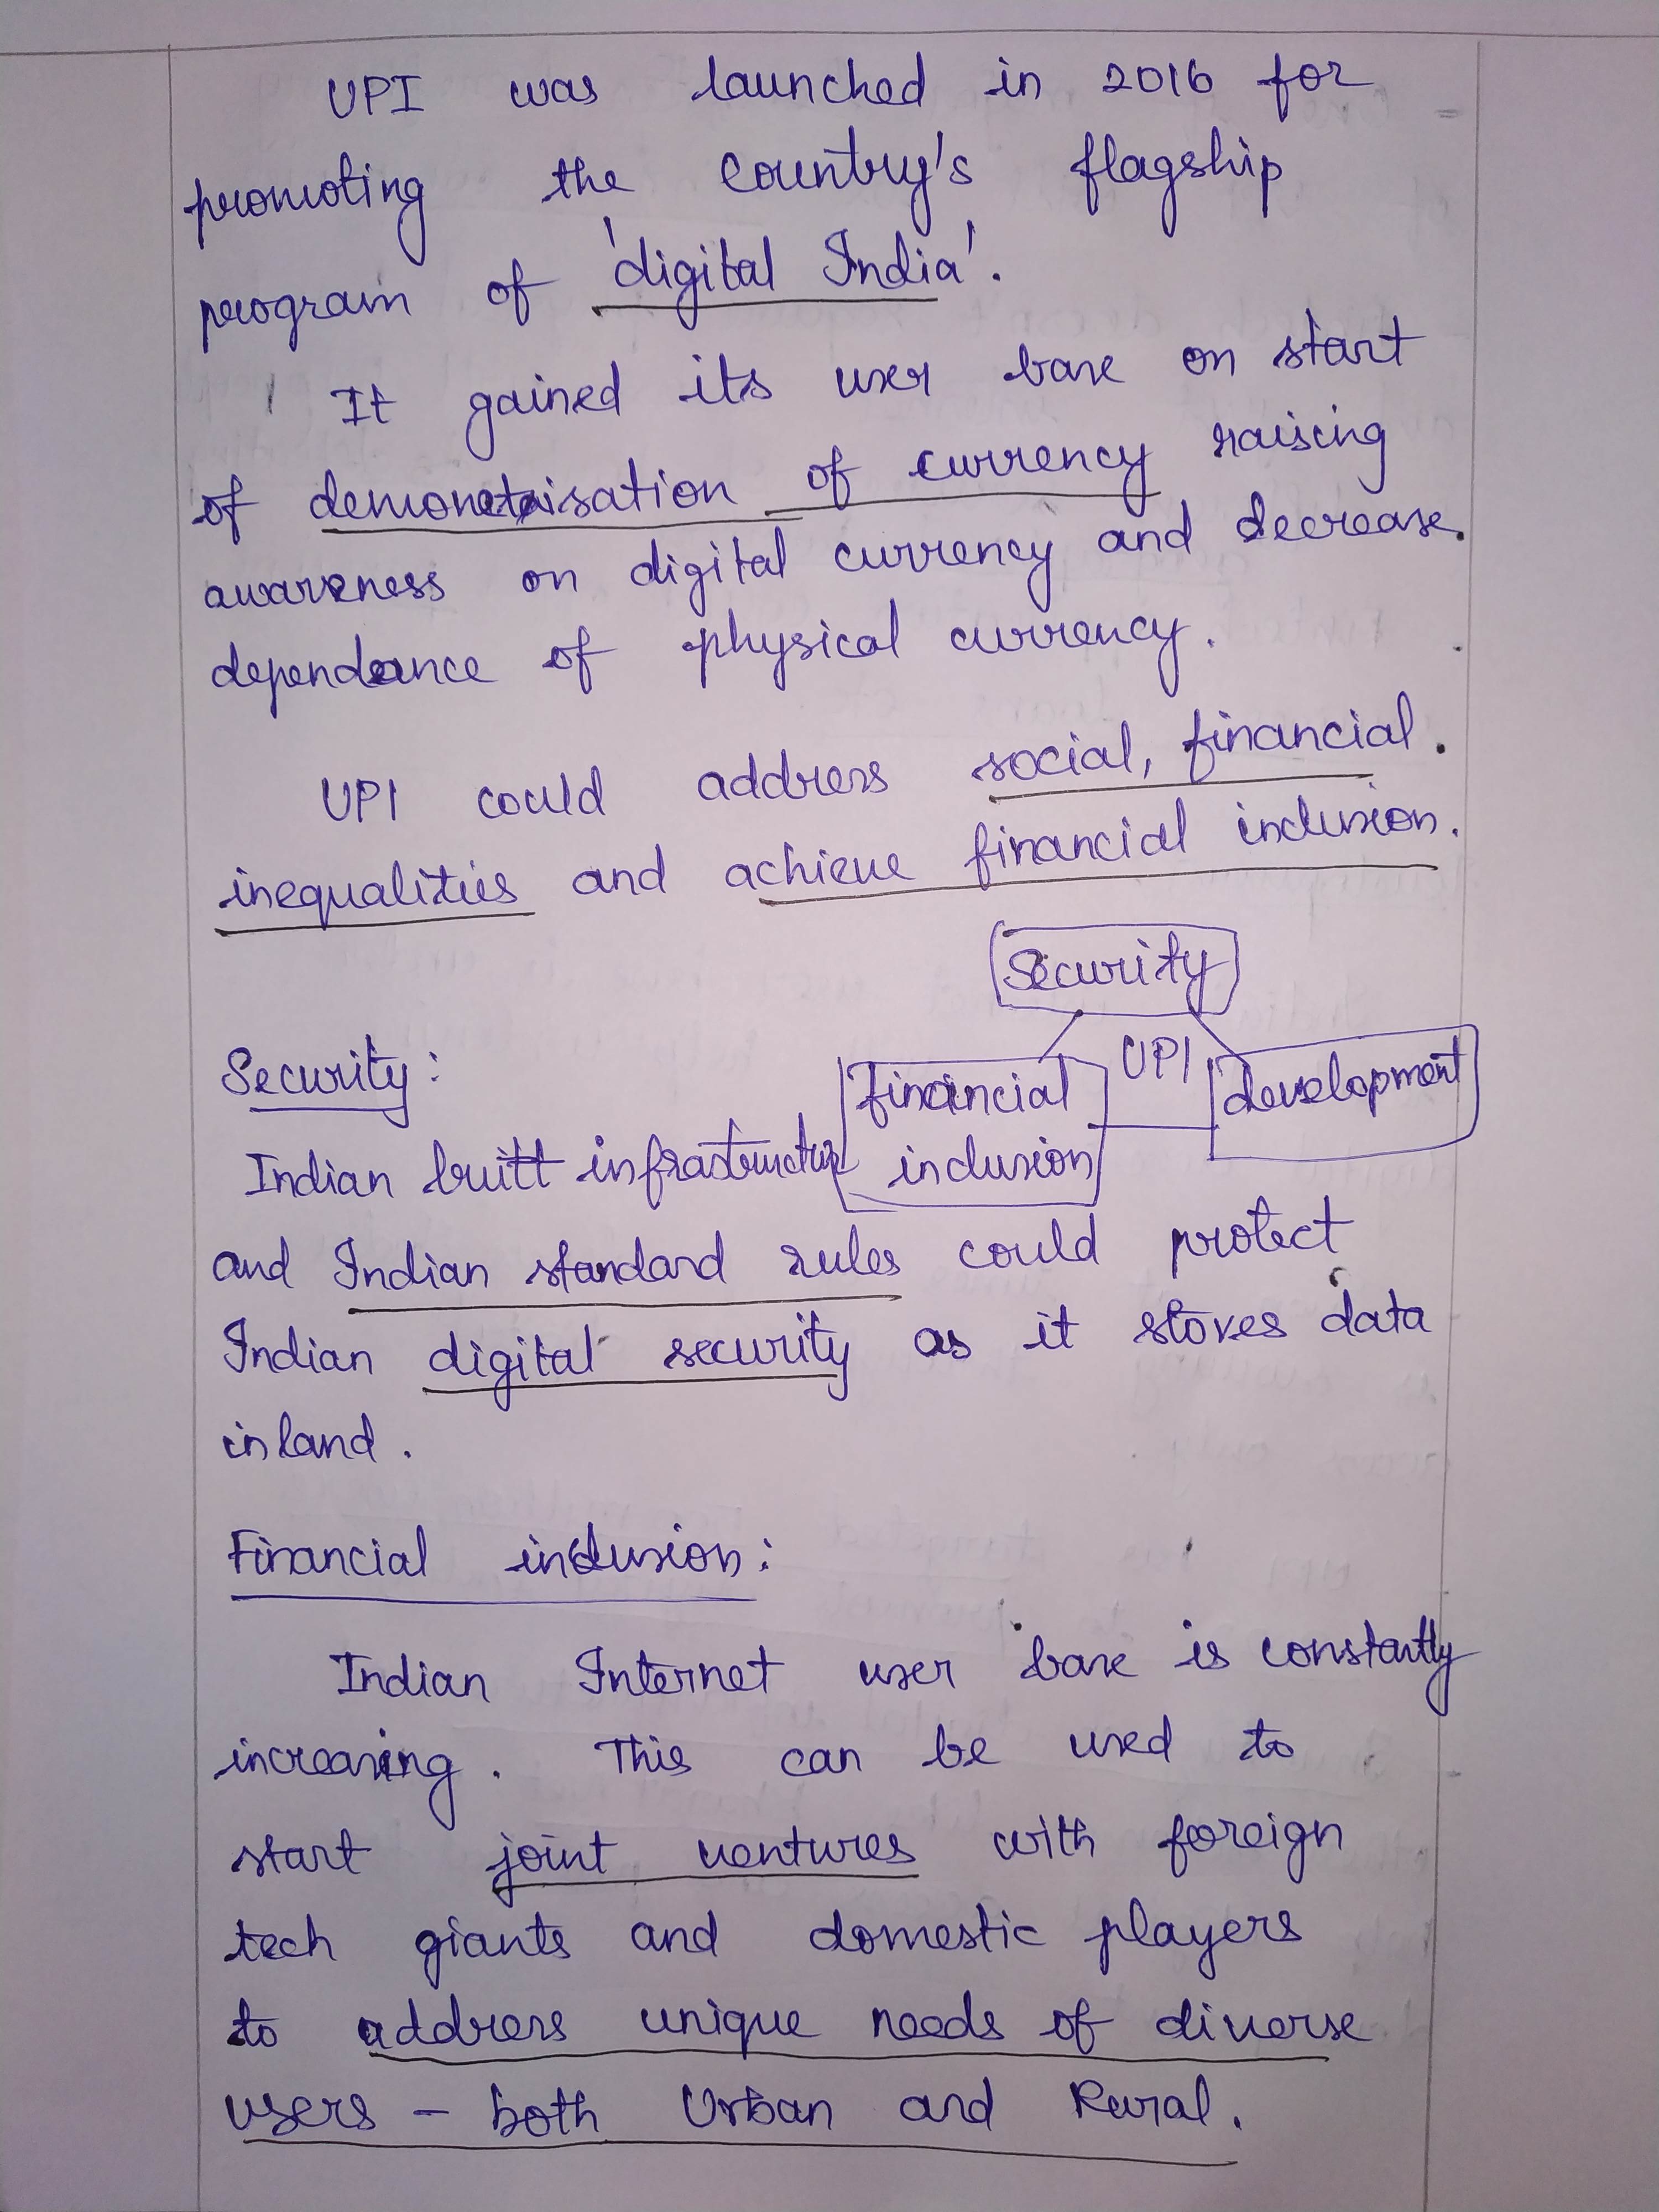 UPI was launched in 2016 for
promoting the country's flagship
program of 'digital India'.
It gained its user base on start
of demonetisation of currency raising
awareness on digital currency and decrease
dependance of physical currency.
UPI could address social, financial
inequalities and achieve financial inclusion.
Security
UPI
financial
inclusion
development
Security:
Indian built infrastructure
and Indian standard rules could protect
Indian digital security as it stores data
inland.
Financial inclusion:
Indian Internet user base is constantly
increasing. This can be used to
start joint ventures with foreign
tech giants and domestic players
to address unique needs of diverse
users - both Urban and Rural.